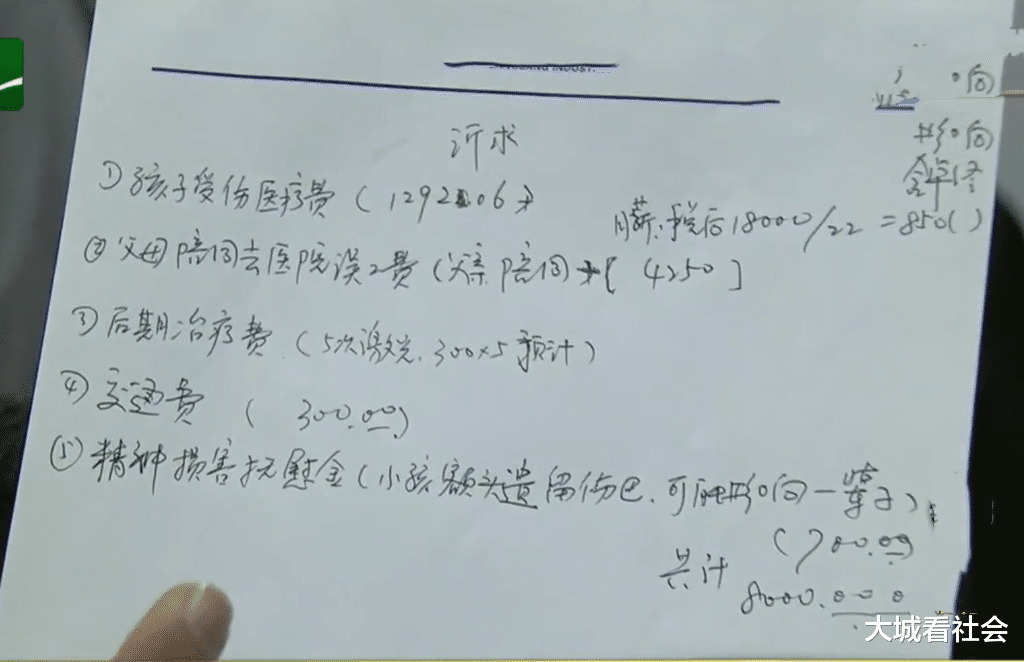 诉求
①孩子受伤医疗费(1292.06)
月薪:税后18000/22=850()
②父母陪同去医院误工费(父亲陪同→[4250]
③后期治疗费(5次激光.300×5预计)
④交通费(300.00)
⑤精神损害抚慰金(小孩额头遗留伤巴.可能影响一辈子)
(700.00)
共计
8000.000
大城看社会